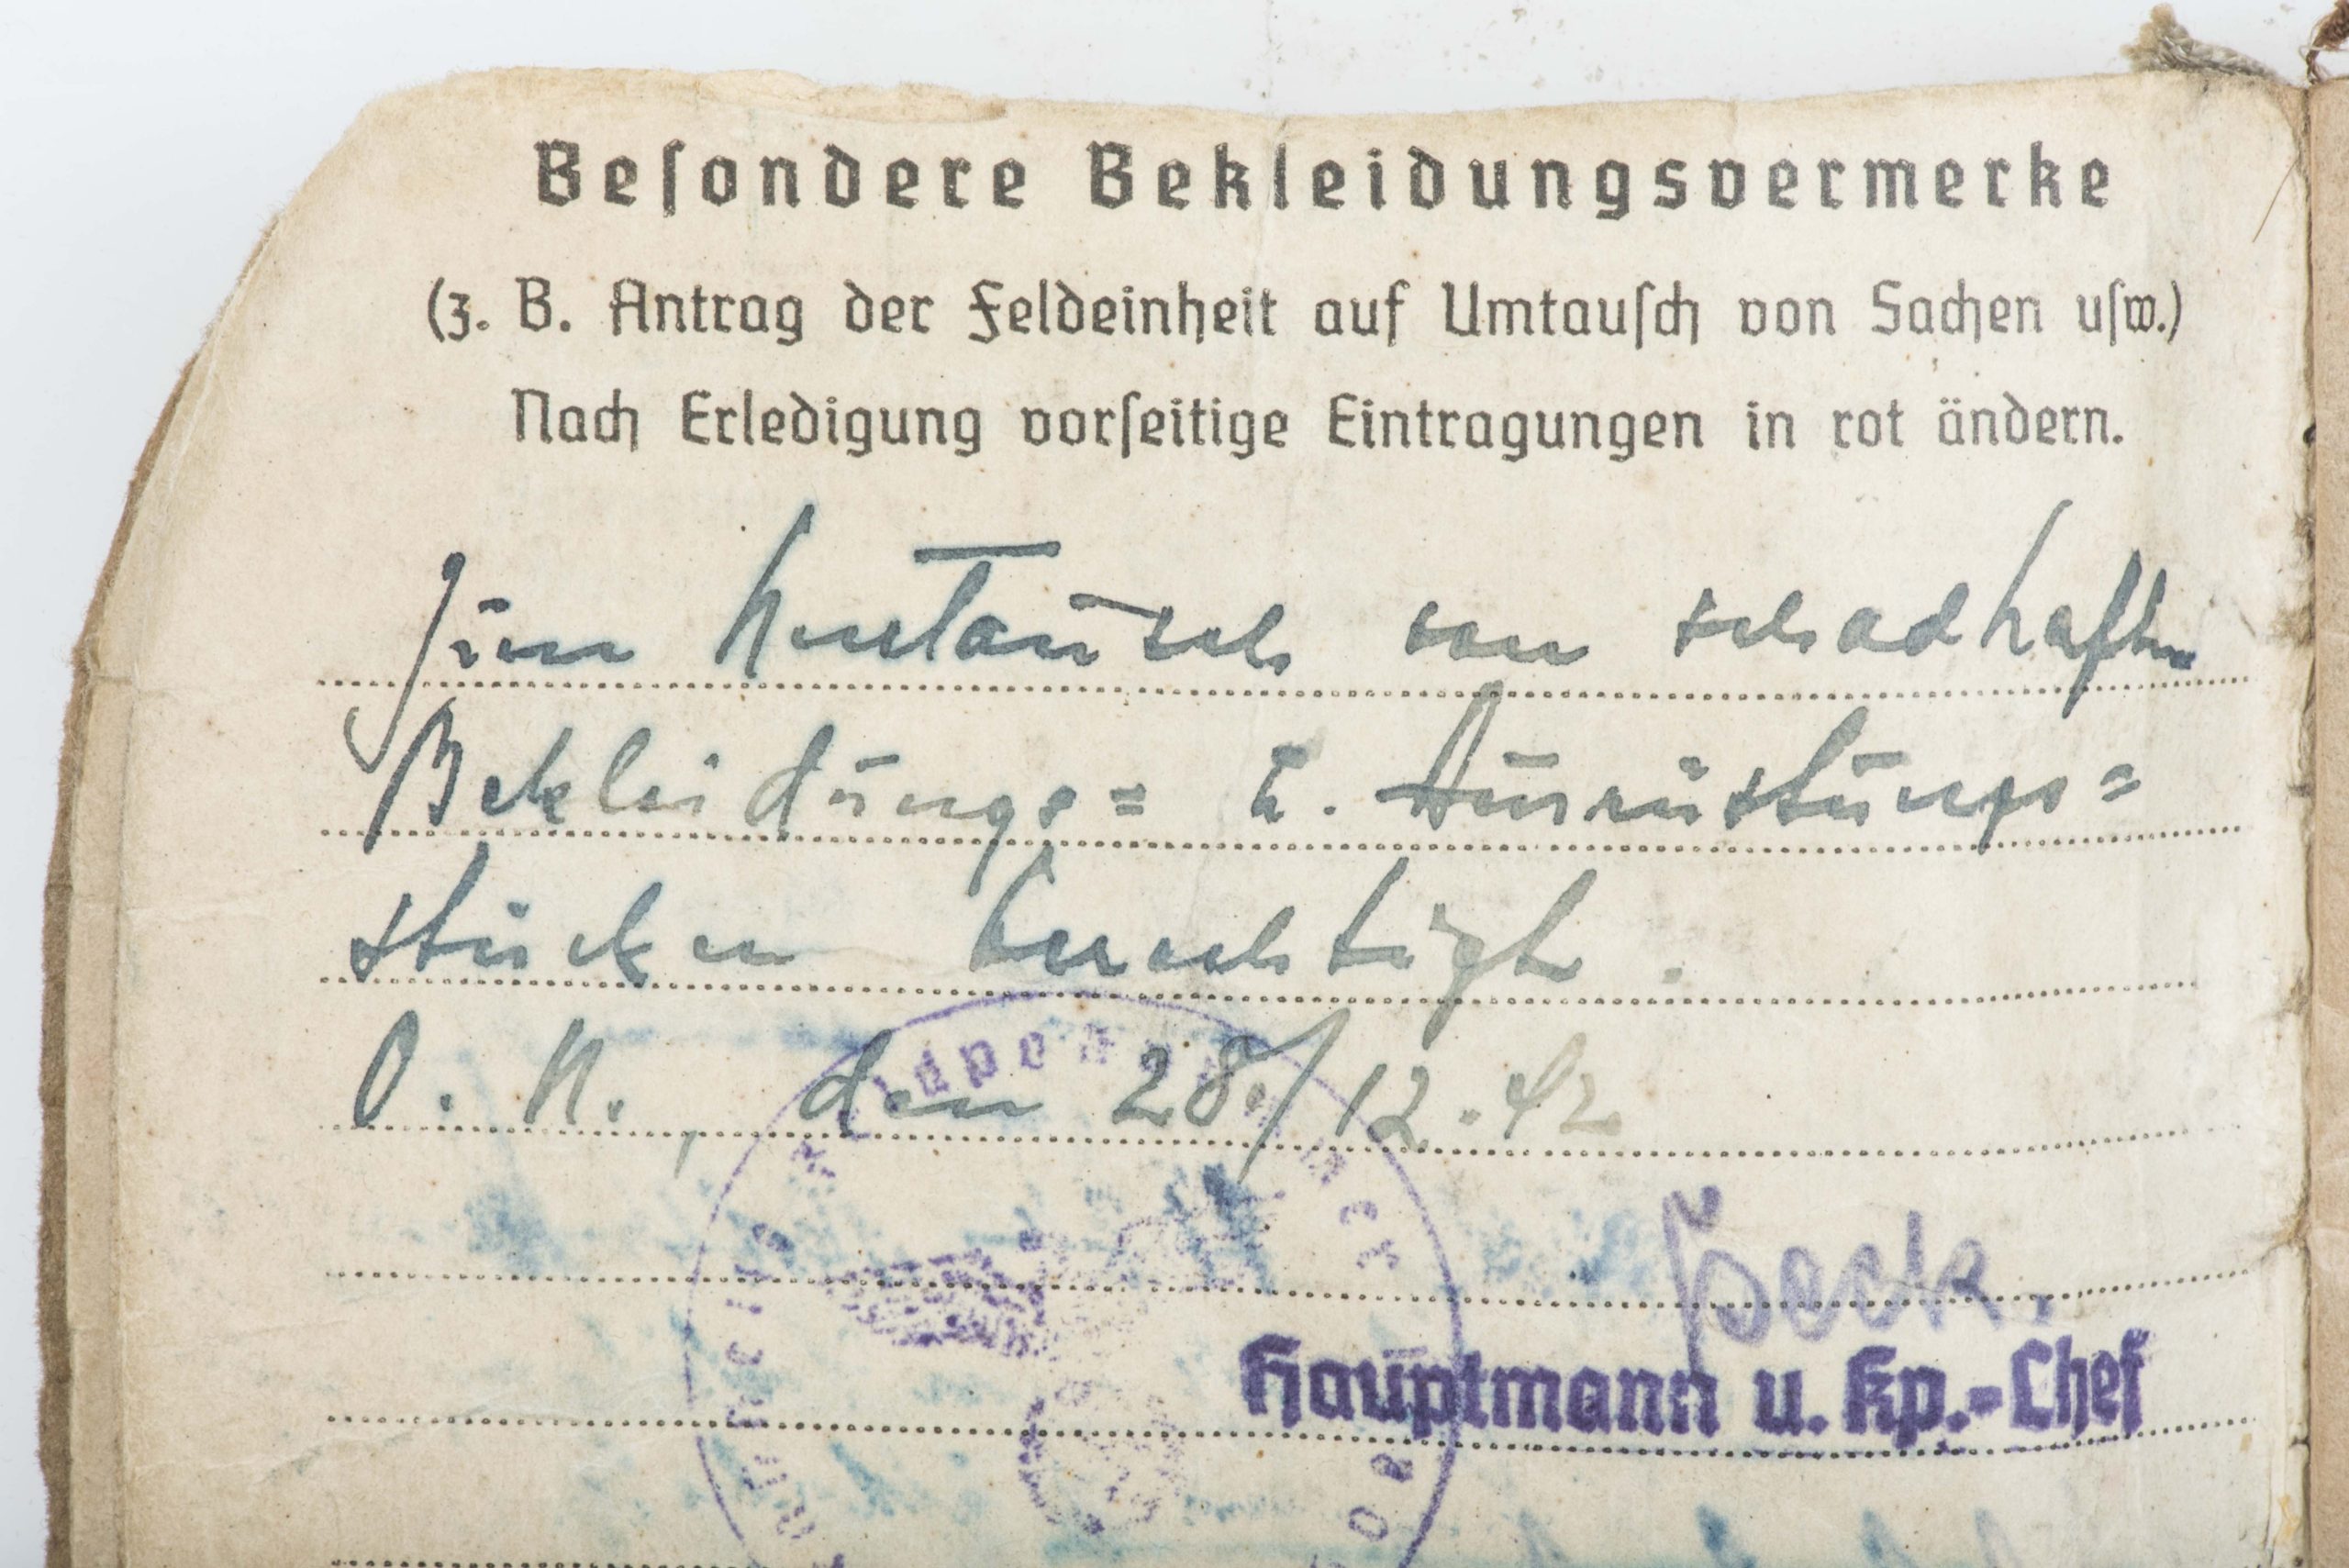 Besondere Bekleidungsvermerke
(z. B. Antrag der Feldeinheit auf Umtausch von Sachen usw.)
Nach Erledigung vorseitige Eintragungen in rot ändern.
Zum Umtausch von schadhaften
Bekleidungs= u. Ausrüstungs=
stücken berechtigt.
O. U., den 28./12.42
Beck.
Hauptmann u. Kp.-Chef